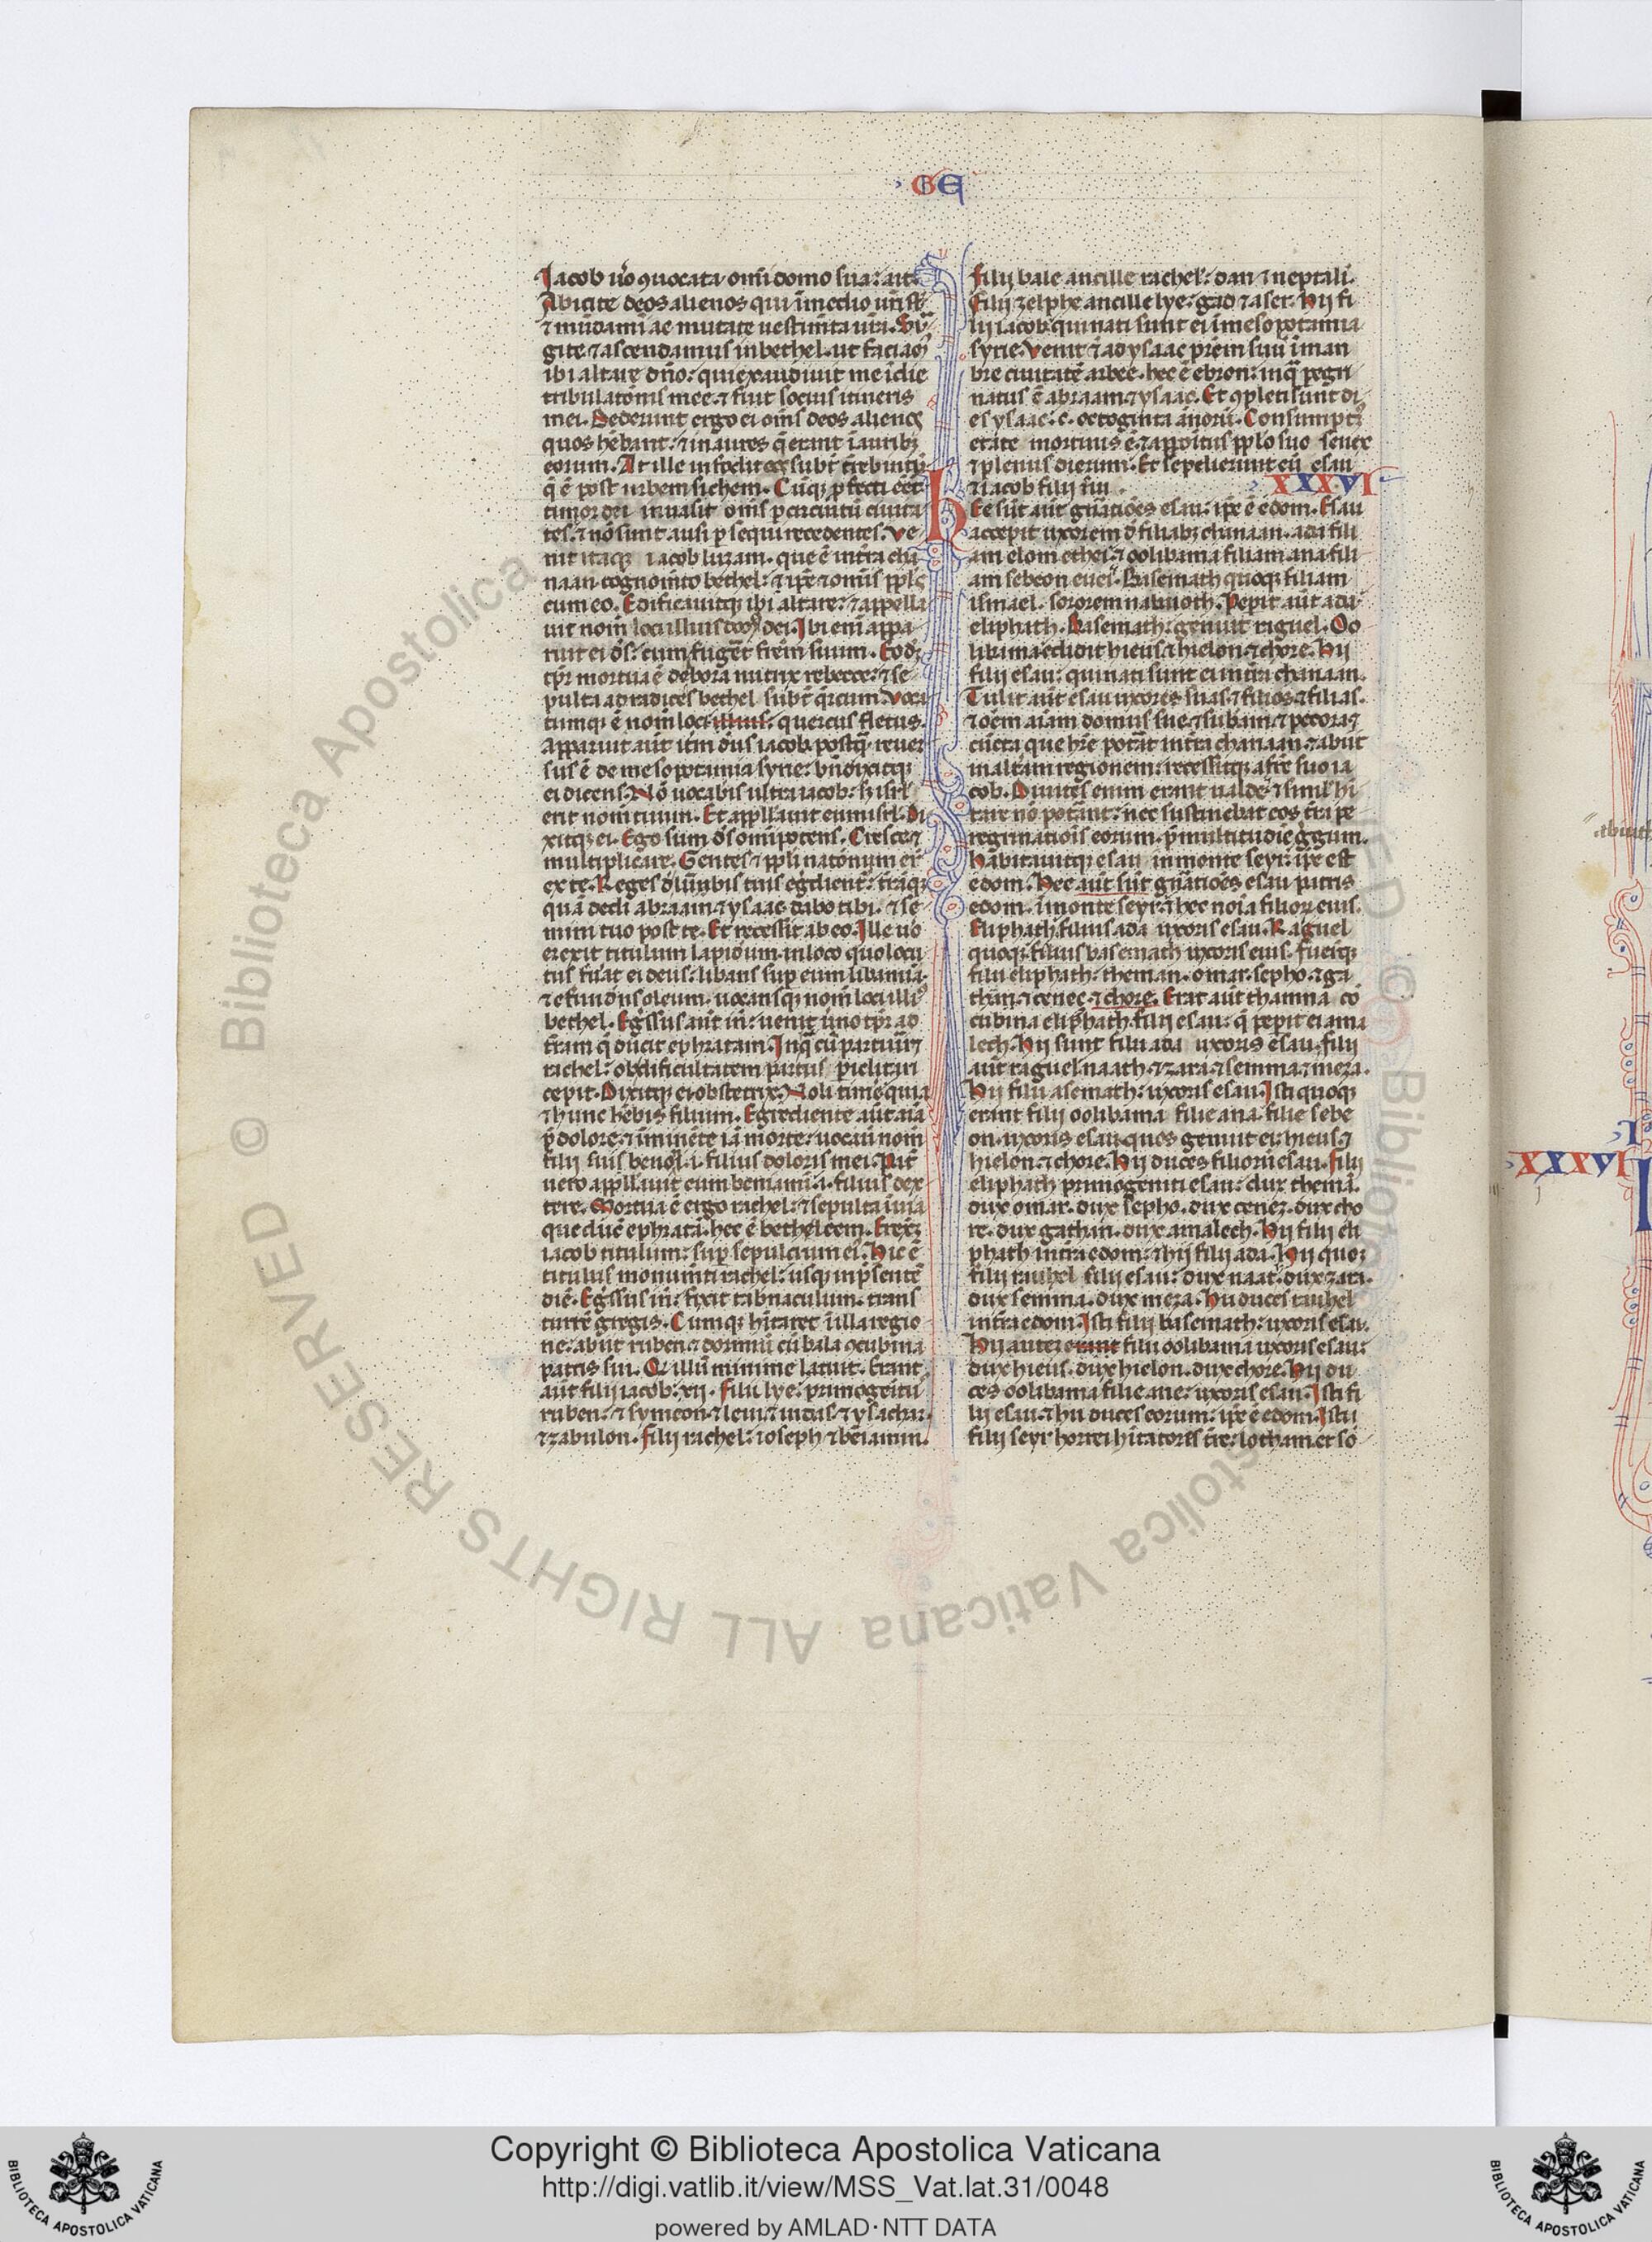 GE
Iacob ũo ꝯuocata om̃i domo sua: ait
Abicite deos alienos qui ĩ medio ur̃i st̃
⁊ mũdamĩ ac mutate uestim̃ta ur̃a. Sur
gite ⁊ ascendamus in bethel. ut faciam᷒
ibi altare dño: qui exaudiuit me ĩ die
tribulatõnis mee. ⁊ fuit socius itineris
mei. Dederunt ergo ei om̃s deos alienos
quos hẽbant: ⁊ inaures q̃ erant ĩ aurib᷒
eorum. At ille infodit eas subt̃ t̃ebintũ
q̃ ẽ post urbem sichem. Cũq᷒ ꝓfecti eẽt
timor dei inuasit om̃s ꝑ circuitũ ciuita
tes. ⁊ nõ sunt ausi ꝑsequi recedentes. Ve
nit itaq᷒ iacob luzam. que ẽ in t̃ra cha
naan cognom̃to bethel: ⁊ ip̃e ⁊ om̃is ppl̃s
cum eo. Edificauitq᷒ ibi altare: ⁊ appella
uit nom̃ loci illius dom᷒ dei. Ibi eni appa
ruit ei d̃s: cum fuget̃ fr̃em suum. Eod᷒
tp̃r mortua ẽ debora nutrix rebecce: ⁊ se
pulta ad radices bethel subt̃ q̃rcum. Voca
tumq᷒ ẽ nom̃ loci illius: quercus fletus.
Apparuit aut̃ itm̃ d̃us iacob. postq̃ reuer
sus ẽ de mesopotamia syrie: bñdixitq᷒
ei dicens. Nõ uocabis ultra iacob: s᷒ isrl̃
erit nom̃ tuum. Et appll̃auit eum isrl̃. Di
xitq᷒ ei. Ego sum d̃s om̃ipotens. Cresce ⁊
multiplicare. Gentes ⁊ ppl̃i natõnum er̃
ex te. Reges d̃ lũbis tuis eg̃dient᷒: t̃raq᷒
quã dedi abraam ⁊ ysaac. dabo tibi. ⁊ se
mini tuo post te. Et recessit ab eo. Ille ũo
erexit titulum lapideum. in loco quo locu
tus fũat ei deus: libans sup eum libamĩa.
⁊ efundens oleum. uocansq᷒ nom̃ loci illi᷒
bethel. Eg̃ssus aut̃ in̄: uenit ũno tp̃r ad
t̃ram q̃ ducit ephratam. In q̃ cũ parturiret
rachel: ob dificultatem partus ꝑiclitari
cepit. Dixitq᷒ ei obstetrix. Noli tim̃e quia
⁊ hunc hẽbis filium. Egrediente aut̃ aĩa
p̃ dolore: ⁊ ĩminẽte iã morte: uocauit nom̃
filii sui benoni .i. filius doloris mei. Pat̃
uero appll̃auit eum beniamĩ .i. filius dex
tere. Mortua ẽ ergo rachel: ⁊ sepulta ĩ uia
que duc̃ ephratã. hec ẽ bethleem. Erex᷒
iacob titulum: sup̃ sepulcrum ei᷒. Hic ẽ
titulus monum̃ti rachel: usq᷒ in p̃sentẽ
diẽ. Eg̃ssus in̄: fixit tab̃naculum. trans
turrẽ gregis. Cumq᷒ hĩtaret ĩ illa regio
ne: abiit ruben ⁊ dormiuit cũ bala ꝯcubina
patris sui. Qd̃ illũ minime latuit. Erant
aut̃ filii iacob: xii. Filii lye: primogeitus
ruben: ⁊ symeon ⁊ leui ⁊ iudas ⁊ ysachar.
⁊ zabulon. Filij rachel: ioseph ⁊ beiamin.
Filij bale ancille rachel: dan ⁊ neptali.
Filij zelphe ancille lye: gad ⁊ aser. Hij fi
lij iacob: qui nati sunt ei ĩ mesopotamia
syrie. Venit ⁊ ad ysaac pr̃em suũ ĩ mam
bre ciuitatẽ arbee. hec ẽ ebron: in q̃ ꝑegri
natus ẽ abraam ⁊ ysaac. Et ꝯpleti sunt di
es ysaac: c. octoginta ãnorũ. Consumpt᷒
etate mortuus ẽ. ⁊ appõitus pp̃lo suo senex
⁊ plenus dierum. Et sepelierunt eũ esau
⁊ iacob filij sui. XXXVI
HEe sũt aut̃ gñatiões esau: ip̃e ẽ edom. Esau
accepit uxorem d̃ filiab᷒ chanaan. ada fili
am elom ethei. ⁊ oolibama filiam ana fili
am sebeon euei. Basemath quoq᷒ filiam
ismael. sororem nabaioth. Pepit aut̃ ada
eliphath. Basemath: genuit raguel. Oo
libama: edidit hieus ⁊ hielon. ⁊ chore. Hij
filij esau: qui nati sunt ei in t̃ra chanaan.
Tulit aut̃ esau uxores suas ⁊ filios ⁊ filias.
⁊ oẽm aĩam domus sue: ⁊ subam ⁊ pecora: ⁊
cũcta que hr̃e pot̃at in t̃ra chanaan. ⁊ abiit
in altam regionem: recessitq᷒ a fr̃e suo ia
cob. Diuites enim erant ualde: ⁊ simul hĩ
tare nõ pot̃ant: nec sustinebat eos t̃ra pe
regrinatiõis eorum. p̃ multitudiẽ g̃gum.
Habitauitq᷒ esau in monte seyr: ip̃e est
edom. Hec aut̃ sũt gñatiões esau patris
edom. ĩ monte seyr. ⁊ hec noĩa filior̃ eius.
Eliphath. filius ada uxoris esau. Raguel
quoq᷒. filius basemath uxoris eius. Fueĩtq᷒
filii eliphath: theman. omar. sepho. ⁊ ga
than. ⁊ cenec. ⁊ chore. Erat aut̃ thamna cõ
cubina eliphath filij esau: q̃ pepit ei ama
lech. Hij sunt filii ada uxoris esau. Filij
aut̃ raguel: naath. ⁊ zara ⁊ semma ⁊ meza.
Hij filii asemath: uxoris esau. Isti quoq᷒
erant filij oolibama filie ana. filie sebe
on. uxoris esau. quos genuit ei: hieus. ⁊
hielon. ⁊ chore. Hij duces filiorũ esau. Filij
eliphath primogeniti esau: dux themã.
dux omar. dux sepho. dux cenez. dux cho
re. dux gathan. dux amalech. Hij filij eli
phath in t̃ra edom: ⁊ hij filij ada. Hij quoq᷒
filij rauhel filij esau: dux naat. dux zara.
dux semma. dux meza. Hii duces rauhel
in t̃ra edom. Isti filij basemath: uxoris esau.
Hij autez erant filii oolibama uxoris esau:
dux hieus. dux hielon. dux chore. Hij du
ces oolibama filie ane: uxoris esau. Isti fi
lij esau. ⁊ hii duces eorum: ip̃e ẽ edom. Isti
filij seyr horrei hĩtatores t̃re: lotham et so
XXXVI
Copyright © Biblioteca Apostolica Vaticana
http://digi.vatlib.it/view/MSS_Vat.lat.31/0048
powered by AMLAD·NTT DATA
BIBLIOTECA APOSTOLICA VATICANA
BIBLIOTECA APOSTOLICA VATICANA
© Biblioteca Apostolica Vaticana ALL RIGHTS RESERVED